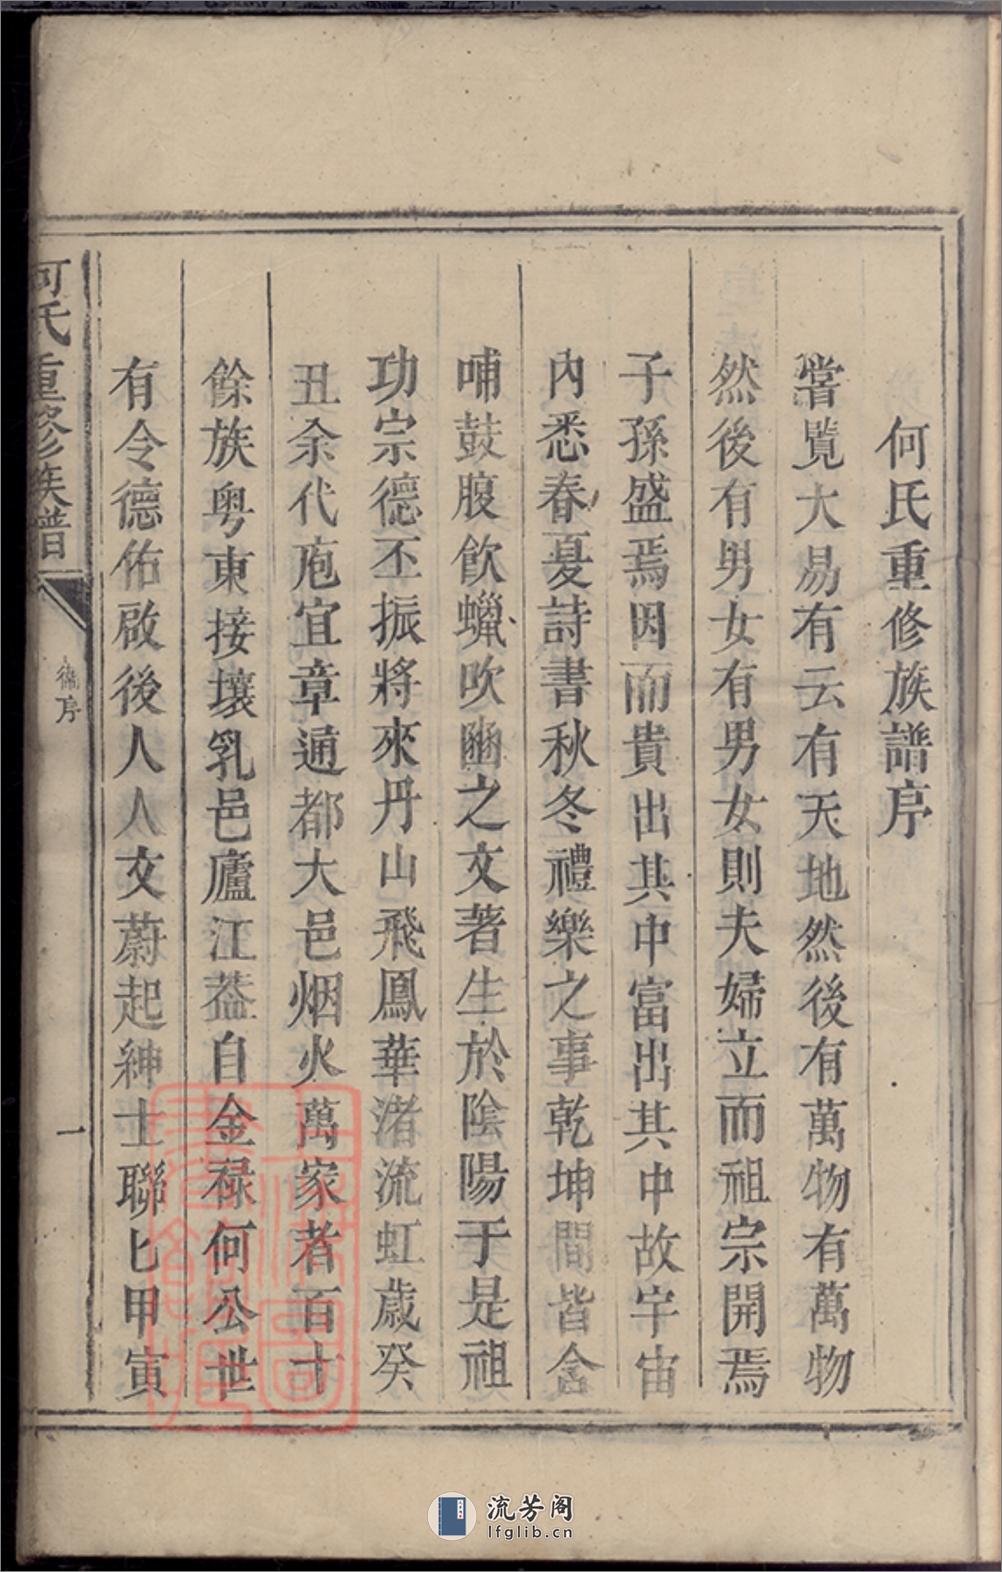 何氏重修族譜序
嘗覧大易有云有天地然後有萬物有萬物
然後有男女有男女則夫婦立而祖宗開焉
子孫盛焉因而貴出其中富出其中故宇宙
內悉春夏詩書秋冬禮樂之事乾坤間皆含
哺鼓腹飲蠟吹豳之文著生於陰陽于是祖
功宗德丕振將來丹山飛鳳華渚流虹歲癸
丑余代庖宜章通都大邑烟火萬家者百十
餘族粤東接壤乳邑廬江葢自金禄何公世
有令德佑啟後人人文蔚起紳士聯匕甲寅
何氏重修族譜
序
一
流芳阁
lfglib.cn